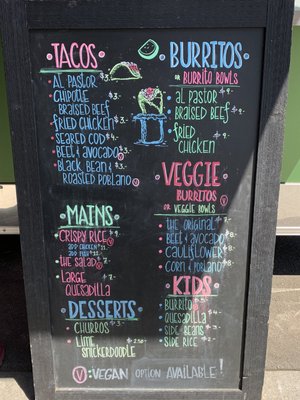 TACOS
AL PASTOR $3.
CHIPOTLE
BRAISED BEEF $3.
FRIED CHICKEN $3.
SEARED COD $3.
BEET & AVOCADO $3. V
BLACK BEAN &
ROASTED POBLANO V
MAINS
CRISPY RICE $9. V
ADD CHICKEN $11.
THE SALAD $7. V
LARGE
QUESADILLA $7.
DESSERTS
CHURROS $3.
LIME
SNICKERDOODLE $2.50
BURRITOS
OR BURRITO BOWLS
AL PASTOR $9.
BRAISED BEEF $9.
FRIED
CHICKEN $9.
VEGGIE
BURRITOS
OR VEGGIE BOWLS
THE ORIGINAL $7.
BEET & AVOCADO $8.
CAULIFLOWER $8.
CORN & POBLANO $8.
KIDS
BURRITO
QUESADILLA $4.
SIDE BEANS $3.
SIDE RICE $2.
V : VEGAN OPTION AVAILABLE!